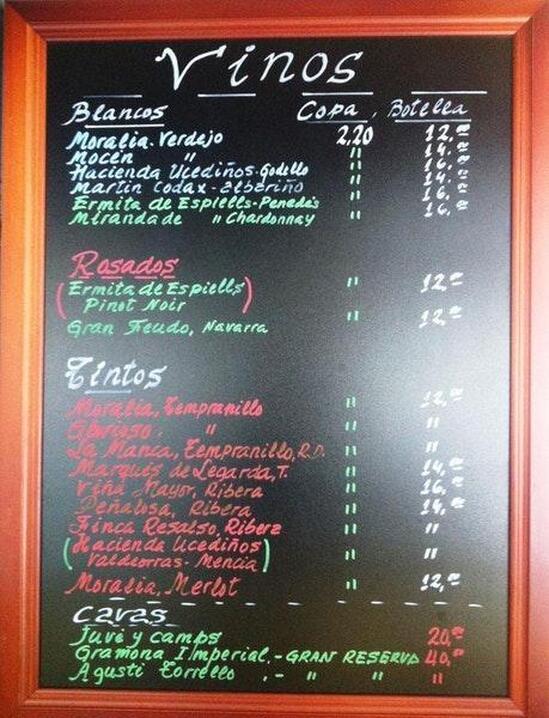 Vinos
Blancos Copa, Botella
Moralia. Verdejo 2,20 12,00
Mocén " " 14,00
Hacienda Ucediños. Godello " 16,00
Martin Codax - Albariño " 14,00
Ermita de Espiells - Penedés " 16,00
Miranda de " Chardonnay " 16,00
Rosados
(Ermita de Espiells) " 12,00
Pinot Noir
Gran Feudo, Navarra " 12,00
Tintos
Moralia, Tempranillo " 12,00
Glorioso, " " "
La Manca, Tempranillo, R.D. " "
Marqués de Legarda, T. " 14,00
Viña Mayor, Ribera " 16,00
Peñalosa, Ribera " 14,00
Finca Resalso, Ribera " "
(Hacienda Ucediños " "
Valdeorras - Mencia)
Moralia, Merlot " 12,00
Cavas
Juvé y Camps 20,00
Gramona I/mperial, - GRAN RESERVA 40,00
Agusti Torrello , - " " "